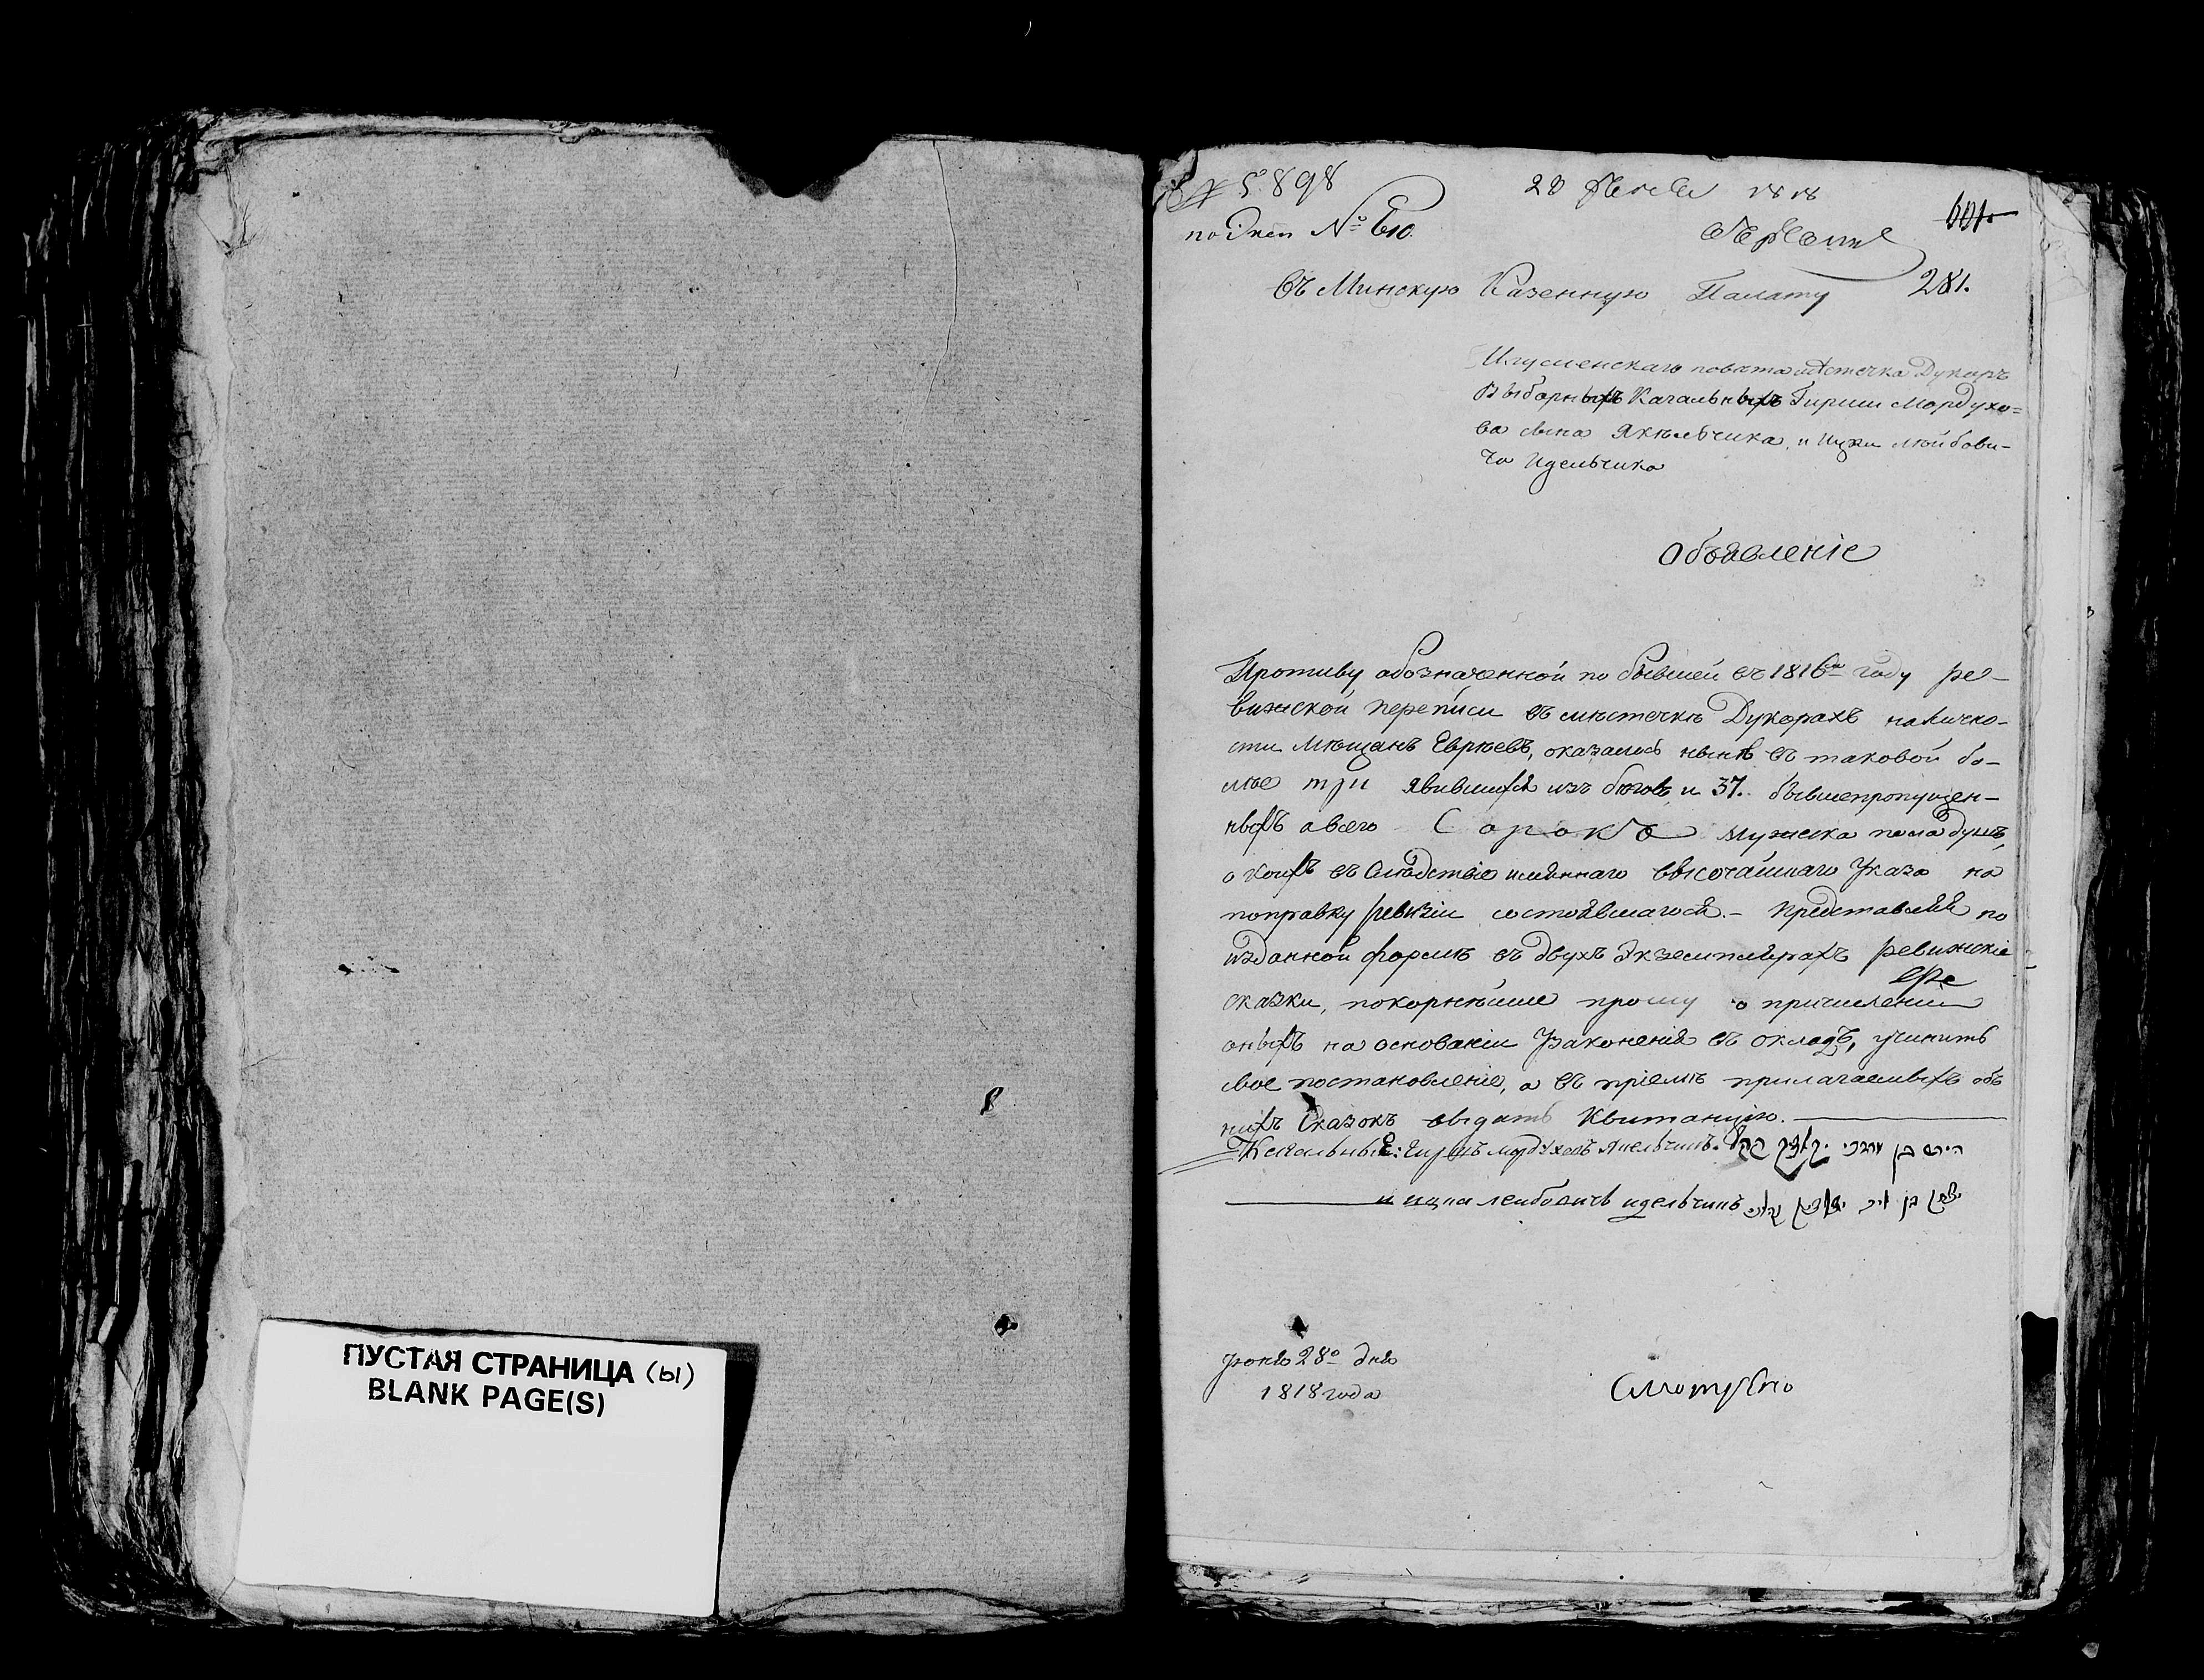 ПУСТАЯ СТРАНИЦА (ы)
BLANK PAGE(S)
№ 5898
28 1818
по Экс № 610.
601
281.
Въ Минскую Казенную Палату
Игуменскаго повѣта мѣстечка Дукоръ
Выборныхъ Кагальныхъ Гирши Мордухо-
ва сына Якельчика, и Ицки Лейбови-
ча Идельчика
Объявленіе
Противу обозначенной по бывшей въ 1816м году ре-
вижской переписи въ мѣстечкѣ Дукорахъ налично-
сти мѣщанъ Евреевъ, оказалось нынѣ въ таковой бо-
лѣе три явившихся изъ бѣговъ и 37. бывшепропущен-
ныхъ а всего Сорокъ мужеска пола душъ,
о коихъ въ слѣдствіе имяннаго высочайшаго Указа на
поправку ревизіи состоявшагося.- Представляя по
изданной формѣ въ двухъ Экземплярахъ ревижскіе
сказки, покорнѣйше прошу о причисленіи
оныхъ на основаніи Узаконенія въ окладъ, учинить
свое постановленіе, а въ пріемѣ прилагаемыхъ объ
нихъ Сказокъ выдать Квитанцію.
Кагальные: Гиршъ Мордуховъ Якельчикъ. הירש בן מרדכי
и ицка лейбовичъ идельчикъ יצחק בן
Іюня 28о дня
1818 года